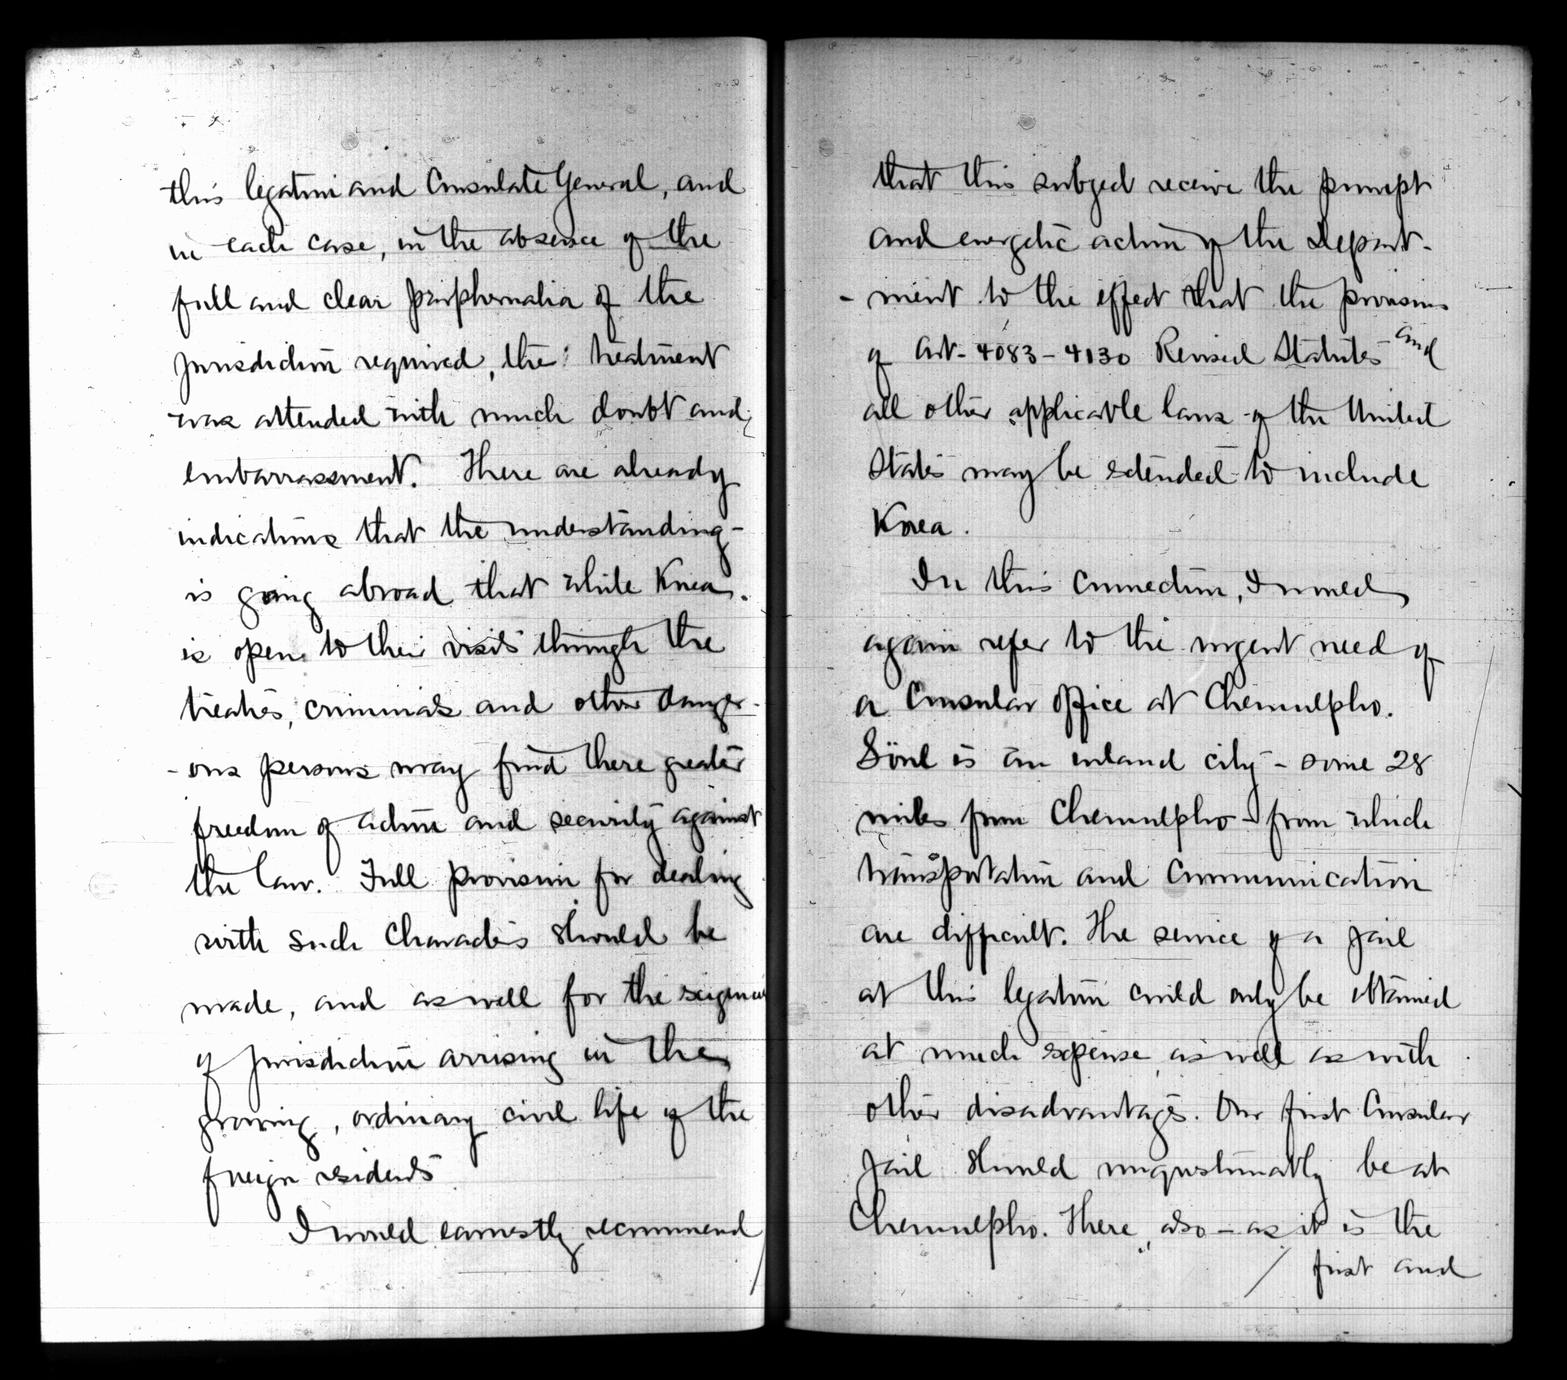 this legation and Consulate General, and
in each case, in the absence of the
full and clear pariphernalia of the
jurisdiction required, the treatment
was attended with much doubt and
embarrassment. There are already
indications that the understanding
is going abroad that while Korea
is open to their visits through the
treaties, criminals and other danger-
-ous persons may find there greater
freedom of action and security against
the law. Full provision for dealing
with such characters should be
made, and as well for the
of jurisdiction arrising in the
growing, ordinary civil life of the
foreign residents
I would earnestly recommend
that this subject receive the prompt
and energetic action of the Depart-
-ment to the effect that the provisions
of Art- 4083-4130 Revised Statutes and
all other applicable laws of the United
States may be extended to include
Korea.
In this connection, I would
again refer to the urgent need of
a Consular office at Chemulpho.
Söul is an inland city - some 28
miles from Chemulpho - from which
transportation and communication
are difficult. The service of a jail
at this legation could only be obtained
at much expense, as well as with
other disadvantages. Our first Consular
jail should unquestionably be at
Chemulpho. There, also - as it is the
first and